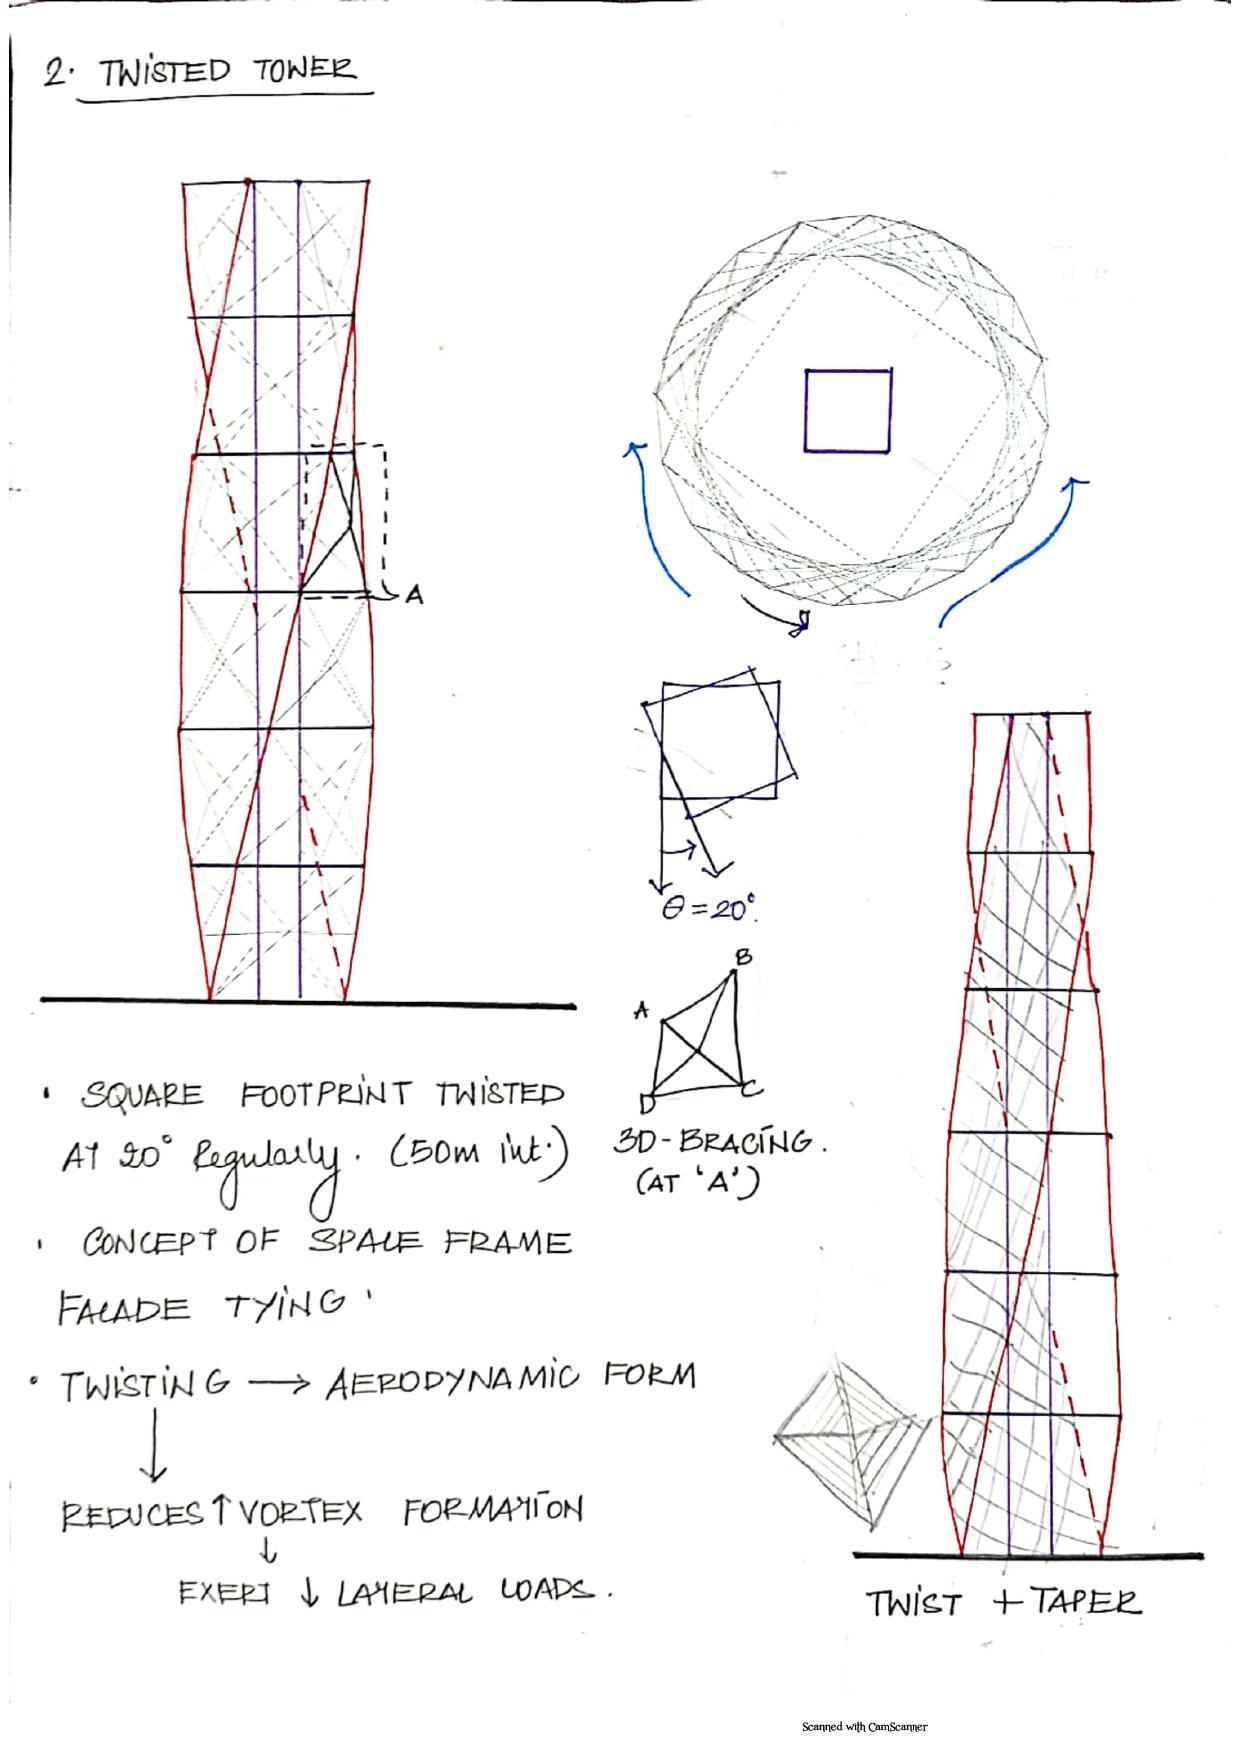 2. TWISTED TOWER
A
θ = 20°.
B
A
D
C
3D-BRACING.
(AT 'A')
• SQUARE FOOTPRINT TWISTED
AT 20° Regularly. (50m int.)
• CONCEPT OF SPACE FRAME
FACADE TYING.
• TWISTING → AERODYNAMIC FORM
↓
REDUCES ↑ VORTEX FORMATION
↓
EXERT ↓ LATERAL LOADS.
TWIST + TAPER
Scanned with CamScanner